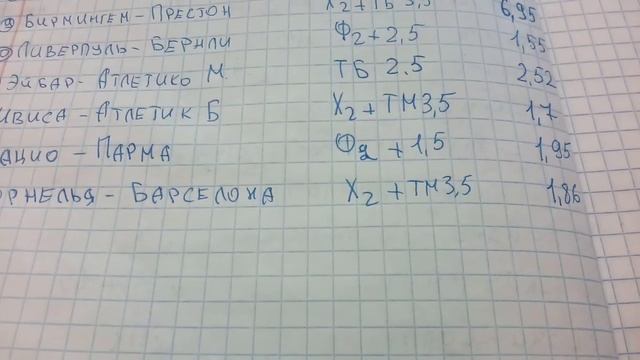 ③ БИРМИНГЕМ - ПРЕСТОН Х2 + ТБ 3,5 6,95
ЛИВЕРПУЛЬ - БЕРНЛИ Ф2 + 2,5 1,55
ЭЙБАР - АТЛЕТИКО М. ТБ 2.5 2,52
ИВИСА - АТЛЕТИК Б Х2 + ТМ 3,5 1,7
АЦИО - ПАРМА Ф2 + 1,5 1,95
ОРНЕЛЬЯ - БАРСЕЛОНА Х2 + ТМ 3,5 1,86